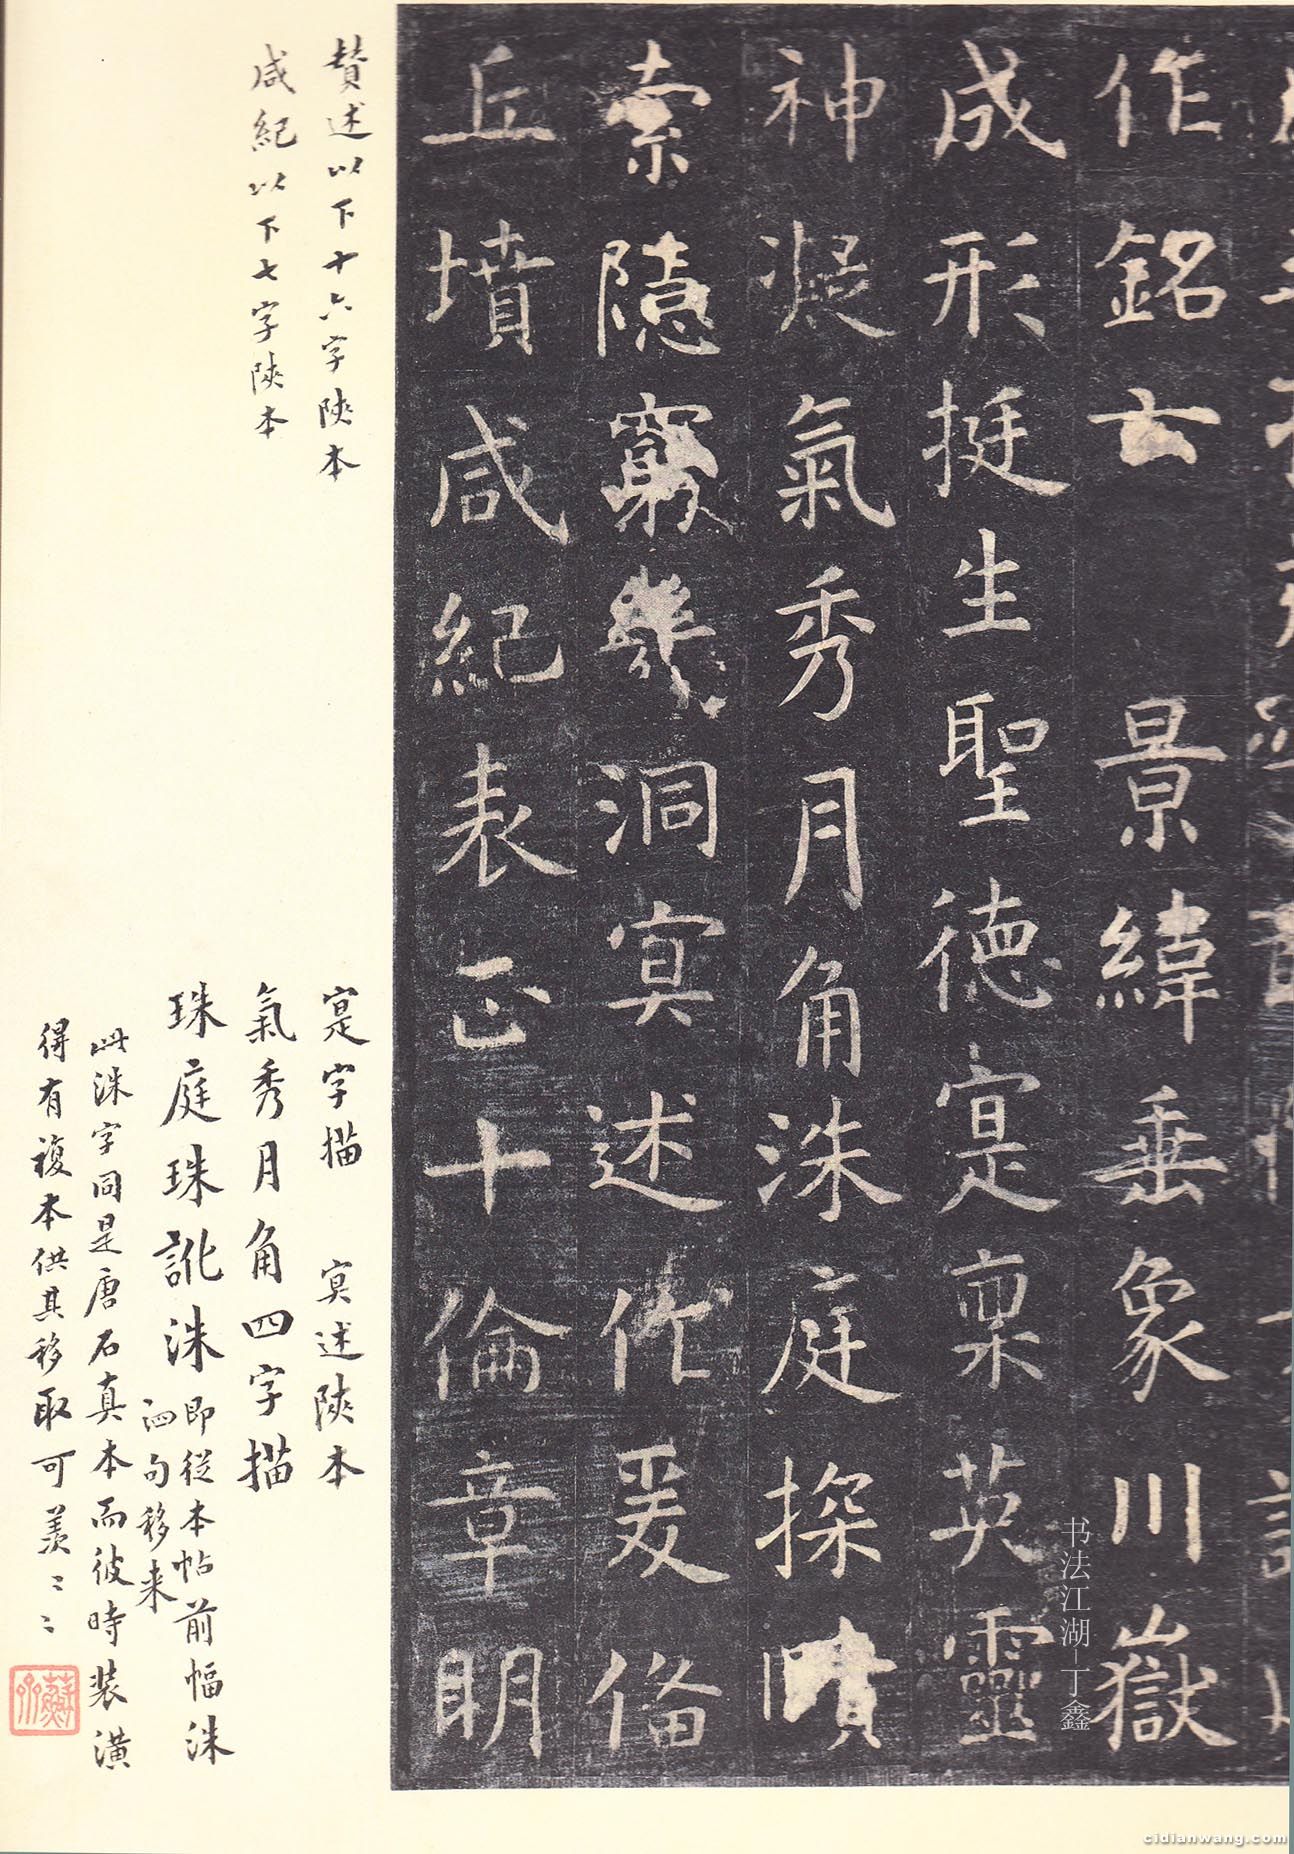 作銘云景緯垂象川嶽
成形挺生聖德寔稟英靈
神凝氣秀月角洙庭探賾
索隱窮幾洞冥述作爰備
丘墳咸紀表正十倫章明
賛述以下十六字陝本
咸紀以下七字陝本
寔字描 冥述陝本
氣秀月角四字描
珠庭珠訛洙即從本帖前幅洙
泗句移来
此洙字同是唐石真本而彼時装潢
得有複本供其移取可羨〻〻
书法江湖-丁鑫
cidianwang.com